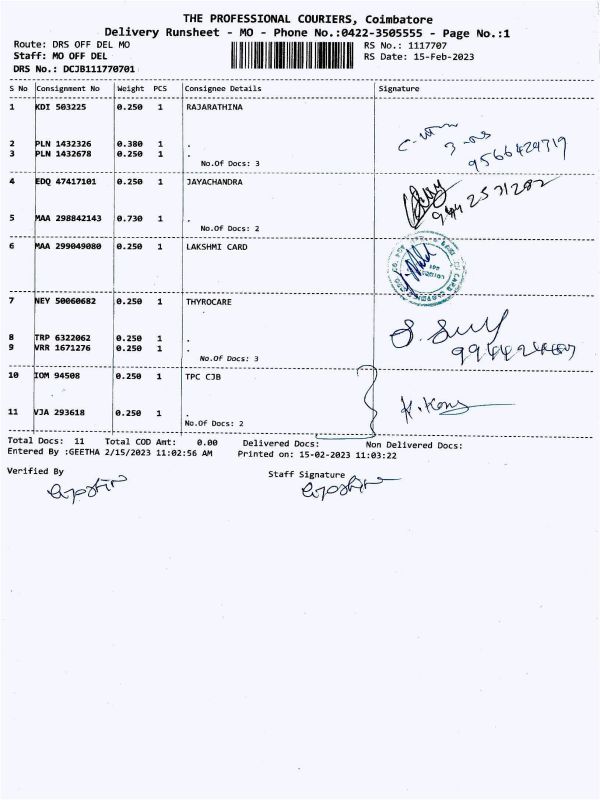 THE PROFESSIONAL COURIERS, Coimbatore
Delivery Runsheet - MO - Phone No.:0422-3505555 - Page No.:1
Route: DRS OFF DEL MO RS No.: 1117707
Staff: MO OFF DEL RS Date: 15-Feb-2023
DRS No.: DCJB111770701
S No Consignment No Weight PCS Consignee Details Signature
1 KDI 503225 0.250 1 RAJARATHINA
2 PLN 1432326 0.380 1 .
3 PLN 1432678 0.250 1 .
9566429719
No.Of Docs: 3
4 EDQ 47417101 0.250 1 JAYACHANDRA
5 MAA 298842143 0.730 1 .
No.Of Docs: 2
6 MAA 299049080 0.250 1 LAKSHMI CARD
7 NEY 50060682 0.250 1 THYROCARE
8 TRP 6322062 0.250 1 .
9 VRR 1671276 0.250 1 .
No.Of Docs: 3
10 IOM 94508 0.250 1 TPC CJB
11 VJA 293618 0.250 1 .
No.Of Docs: 2
Total Docs: 11 Total COD Amt: 0.00 Delivered Docs: Non Delivered Docs:
Entered By :GEETHA 2/15/2023 11:02:56 AM Printed on: 15-02-2023 11:03:22
Verified By Staff Signature